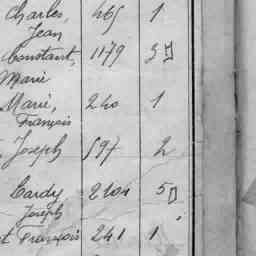 Charles, 465 1
Jean
Constant, 1179 3
Marie
Marie, 240 1
François
Joseph 597 2
Cardy 2104 5
Joseph
t François 241 1